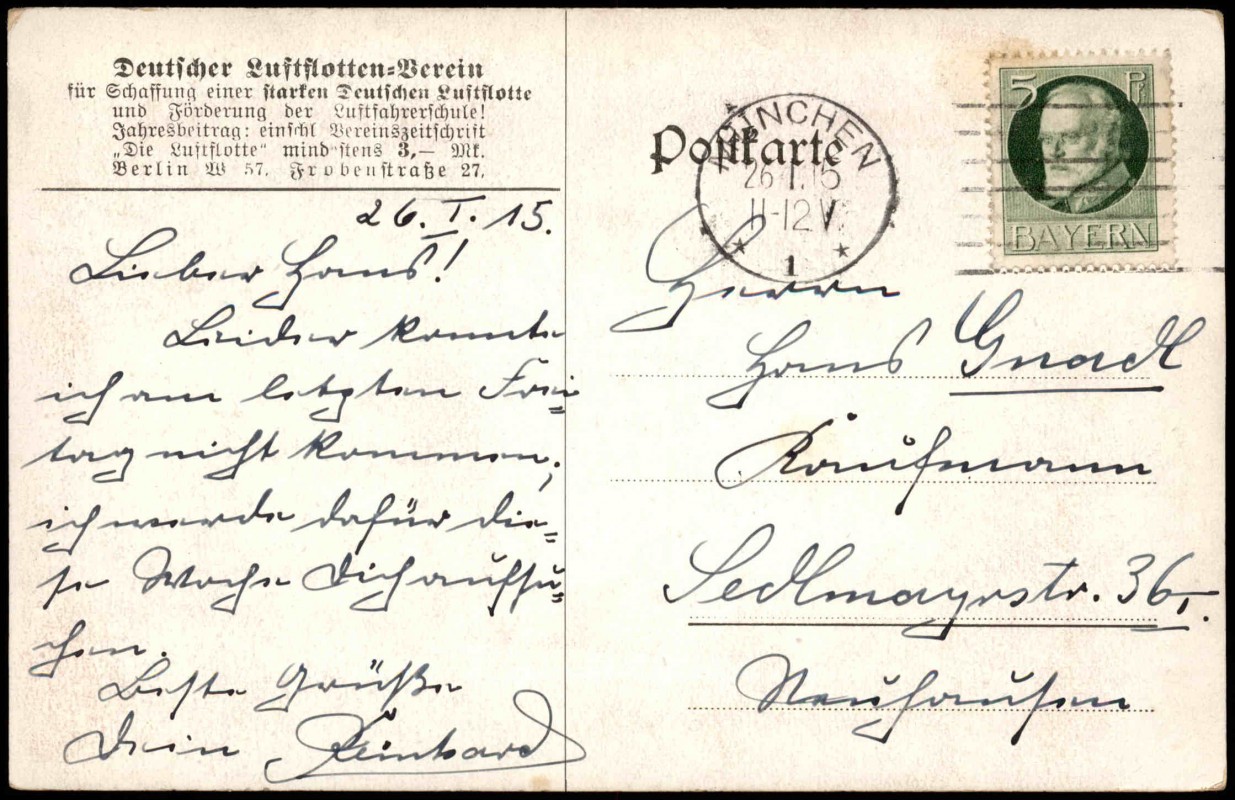 Deutscher Luftflotten=Verein
für Schaffung einer starken Deutschen Luftflotte
und Förderung der Luftfahrerschule!
Jahresbeitrag: einschl Vereinszeitschrift
„Die Luftflotte“ mindestens 3,— Mk.
Berlin W 57. Frobenstraße 27.
26. I. 15.
Lieber Hans!
Leider konnte
ich am letzten Frei=
tag nicht kommen;
ich werde dafür die=
se Woche Dich aufsu=
chen.
Beste Grüße
Dein Reinhard
Postkarte
MÜNCHEN
26.1.15
11-12V.
1
5 Pf
BAYERN
Herrn
Hans Gnadl
Kaufmann
Sedlmayrstr. 36,
Neuhausen